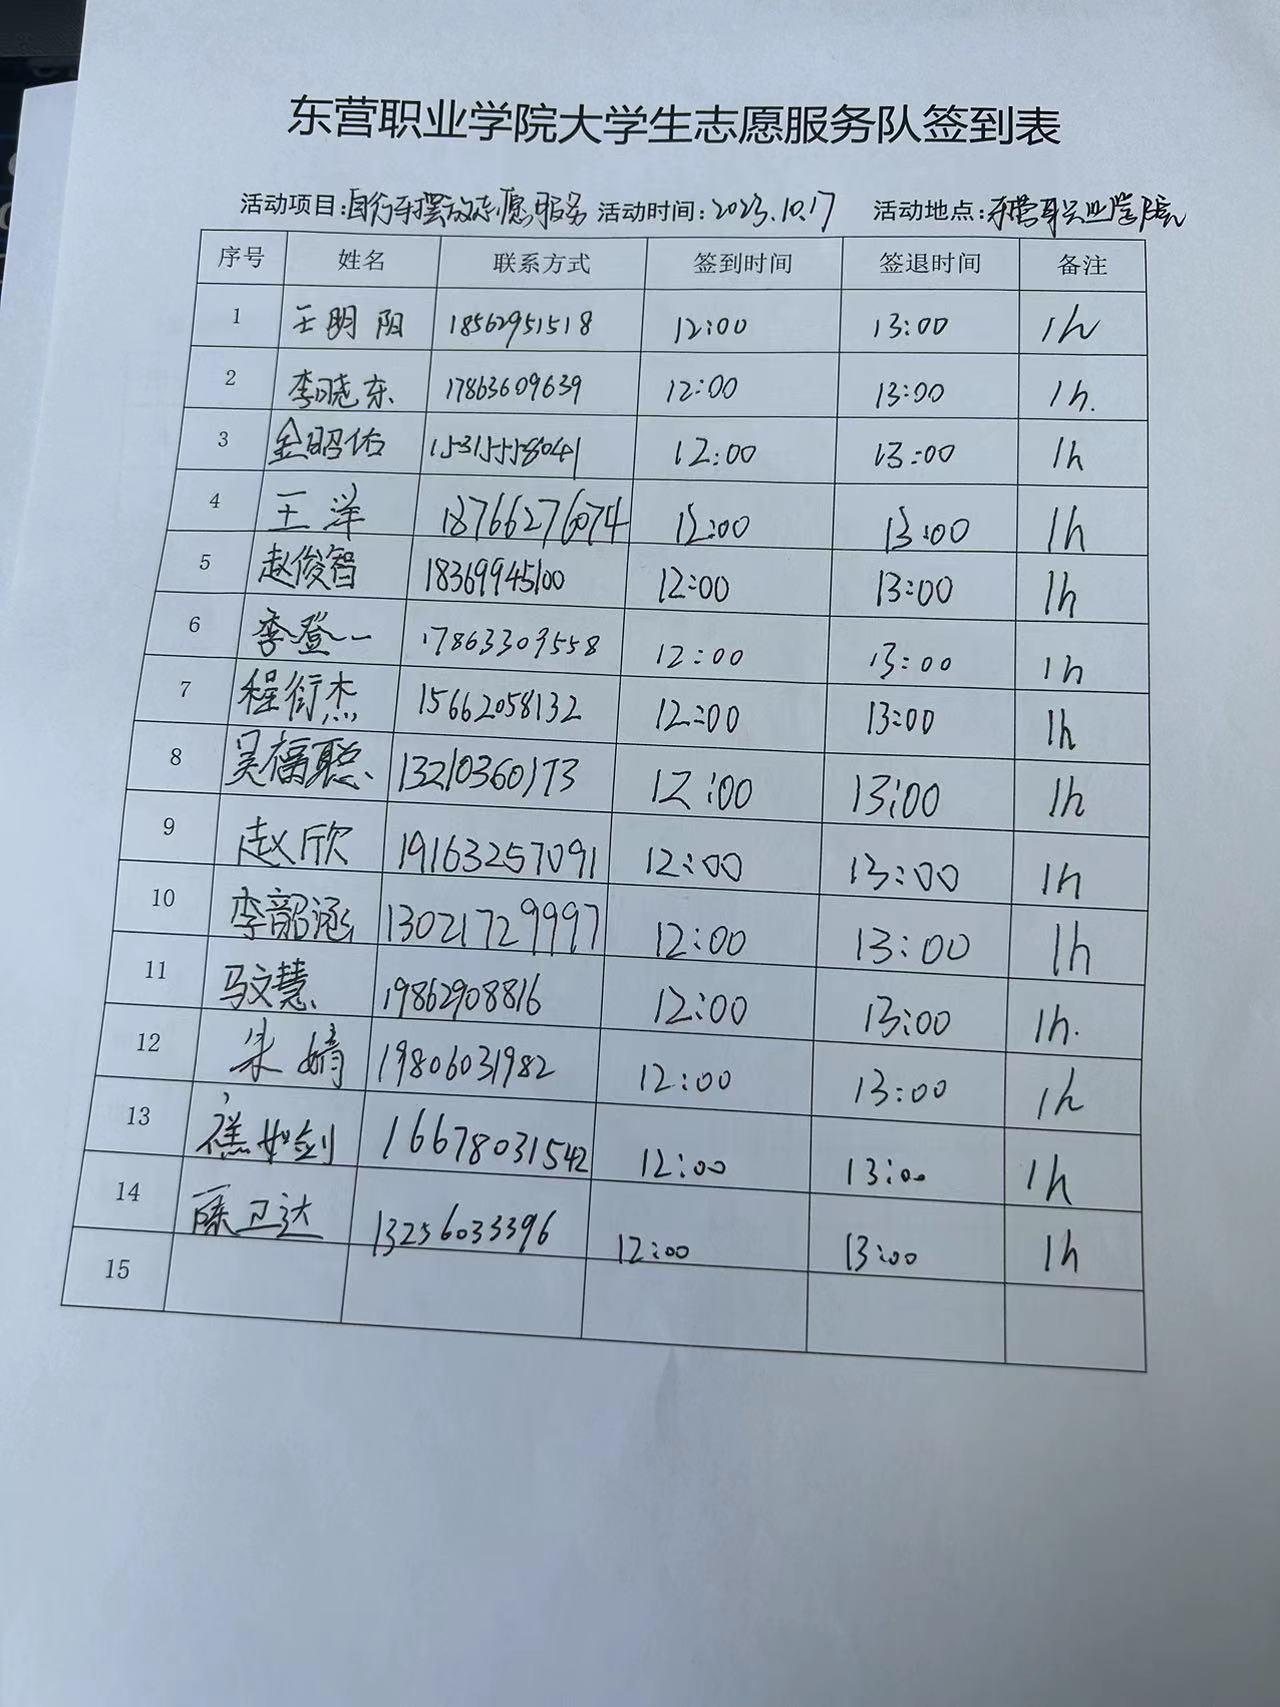 东营职业学院大学生志愿服务队签到表
活动项目:自行车摆放志愿服务 活动时间:2023.10.17 活动地点:东营职业学院
序号 姓名 联系方式 签到时间 签退时间 备注
1 王明阳 18562951518 12:00 13:00 1h
2 李晓东 17863609639 12:00 13:00 1h.
3 金昭佑 15315558041 12:00 13:00 1h
4 王洋 18766276074 12:00 13:00 1h
5 赵俊智 18369945100 12:00 13:00 1h
6 季登一 17863309558 12:00 13:00 1h
7 程衍杰 15662058132 12:00 13:00 1h
8 吴福聪 13210360173 12:00 13:00 1h
9 赵欣 19163257091 12:00 13:00 1h
10 李韶涵 13021729997 12:00 13:00 1h
11 马文慧 19862908816 12:00 13:00 1h.
12 朱婧 19806031982 12:00 13:00 1h
13 16678031542 12:00 13:00 1h
14 滕卫达 13256033396 12:00 13:00 1h
15